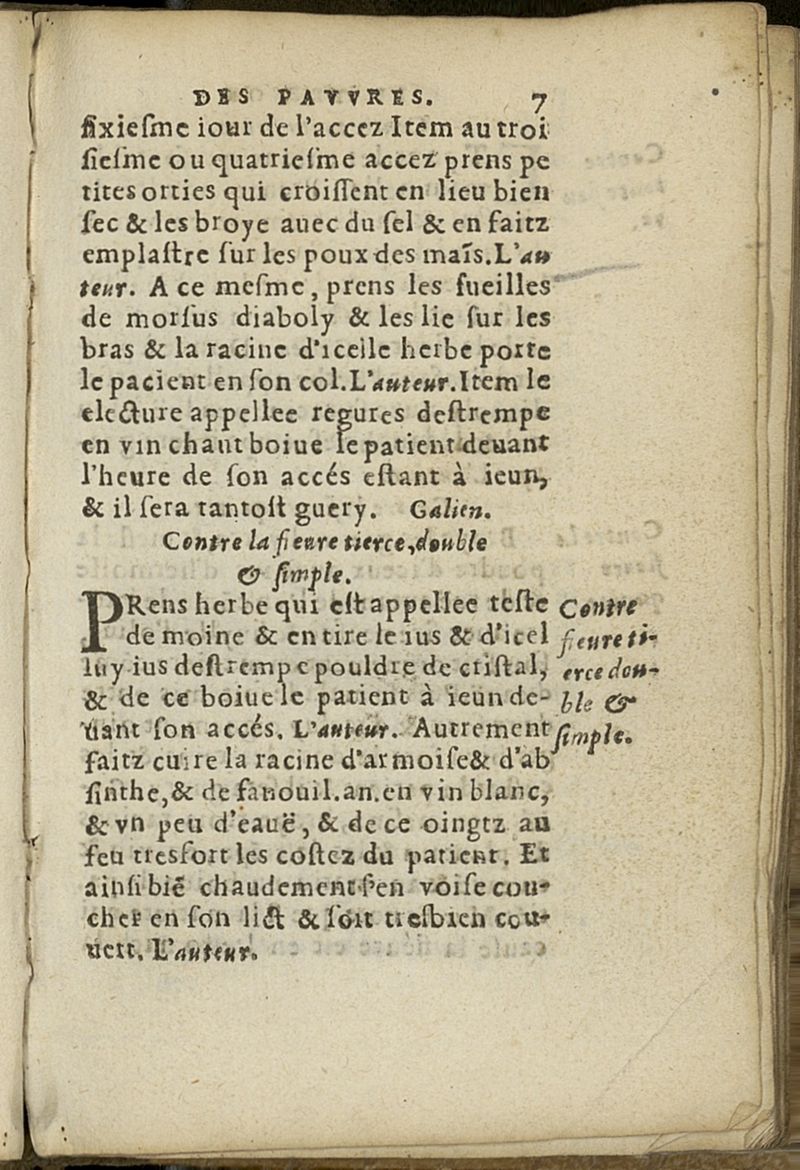 DES PAVVRES. 7
ſixieſme iour de l'accez Item au troi
ſieſme ou quatrieſme accez prens pe
tites orties qui croiſſent en lieu bien
ſec & les broye auec du ſel & en faitz
emplaſtre ſur les poux des maĩs. L'au
teur. A ce meſme, prens les fueilles
de morſus diaboly & les lie ſur les
bras & la racine d'icelle herbe porte
le pacient en ſon col. L'auteur. Item le
electure appellee regures deſtrempe
en vin chaut boiue le patient deuant
l'heure de ſon accés eſtant à ieun,
& il ſera tantoſt guery. Galien.
Contre la fieure tierce, double
& ſimple.
PRens herbe qui eſt appellee teſte
de moine & en tire le ius & d'icel
luy ius deſtrempe pouldre de criſtal,
& de ce boiue le patient à ieun de-
uant ſon accés. L'auteur. Autrement
faitz cuire la racine d'armoiſe & d'ab
ſinthe, & de fanouil. an. en vin blanc,
& vn peu d'eauë, & de ce oingtz au
feu tresfort les coſtez du patient. Et
ainſi biẽ chaudement ſ'en voiſe cou-
cher en ſon lict & ſoit treſbien cou-
uert. L'auteur.
Contre
fieure ti-
erce dou-
ble &
ſimple.